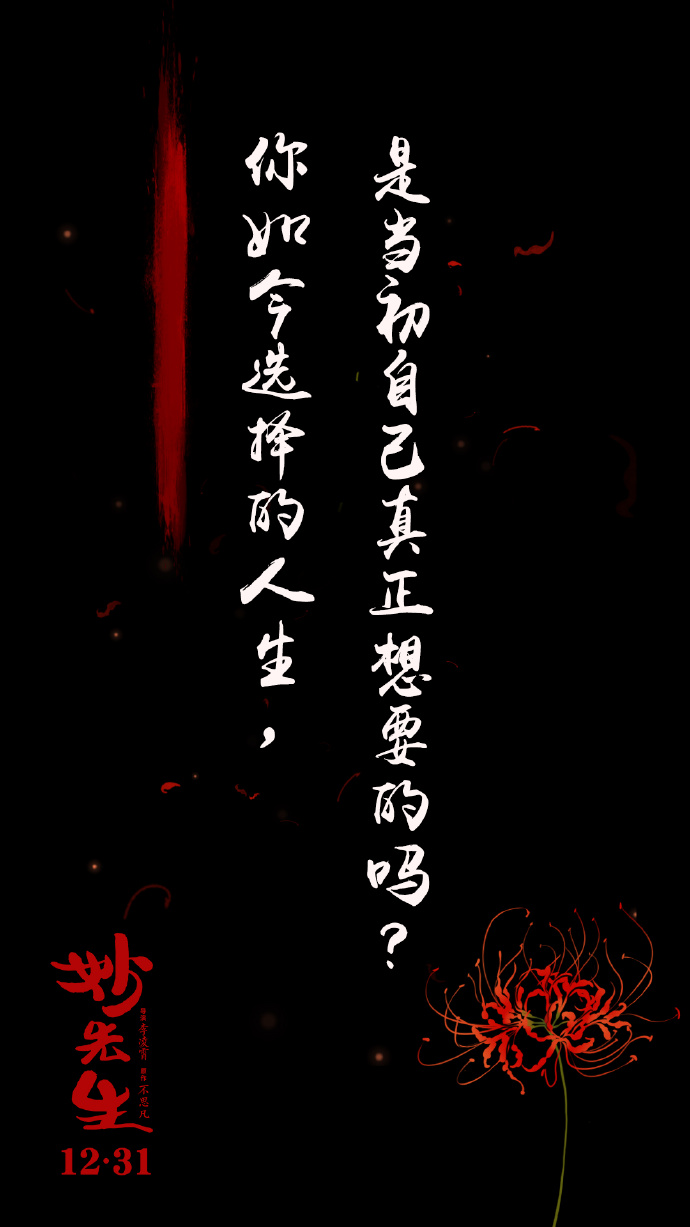 你如今选择的人生，
是当初自己真正想要的吗？
妙先生
导演 李凌霄 编剧 不思凡
12·31